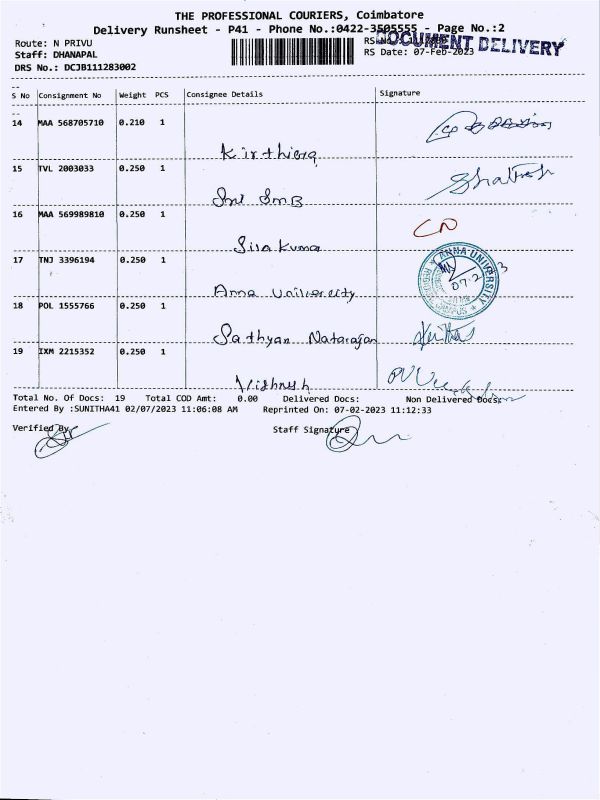 THE PROFESSIONAL COURIERS, Coimbatore
Delivery Runsheet - P41 - Phone No.:0422-3505555 - Page No.:2
DOCUMENT DELIVERY
Route: N PRIVU
Staff: DHANAPAL RS Date: 07-Feb-2023
DRS No.: DCJB111283002
S No Consignment No Weight PCS Consignee Details Signature
14 MAA 568705710 0.210 1
Kirthiga
15 TVL 2003033 0.250 1
16 MAA 569989810 0.250 1
Siva Kumar
17 TNJ 3396194 0.250 1
ANNA UNIVERSITY
Anna University
18 POL 1555766 0.250 1
Sathyan Natarajan
19 IXM 2215352 0.250 1
Vishnesh
Total No. Of Docs: 19 Total COD Amt: 0.00 Delivered Docs: Non Delivered Docs:
Entered By :SUNITHA41 02/07/2023 11:06:08 AM Reprinted On: 07-02-2023 11:12:33
Verified By Staff Signature